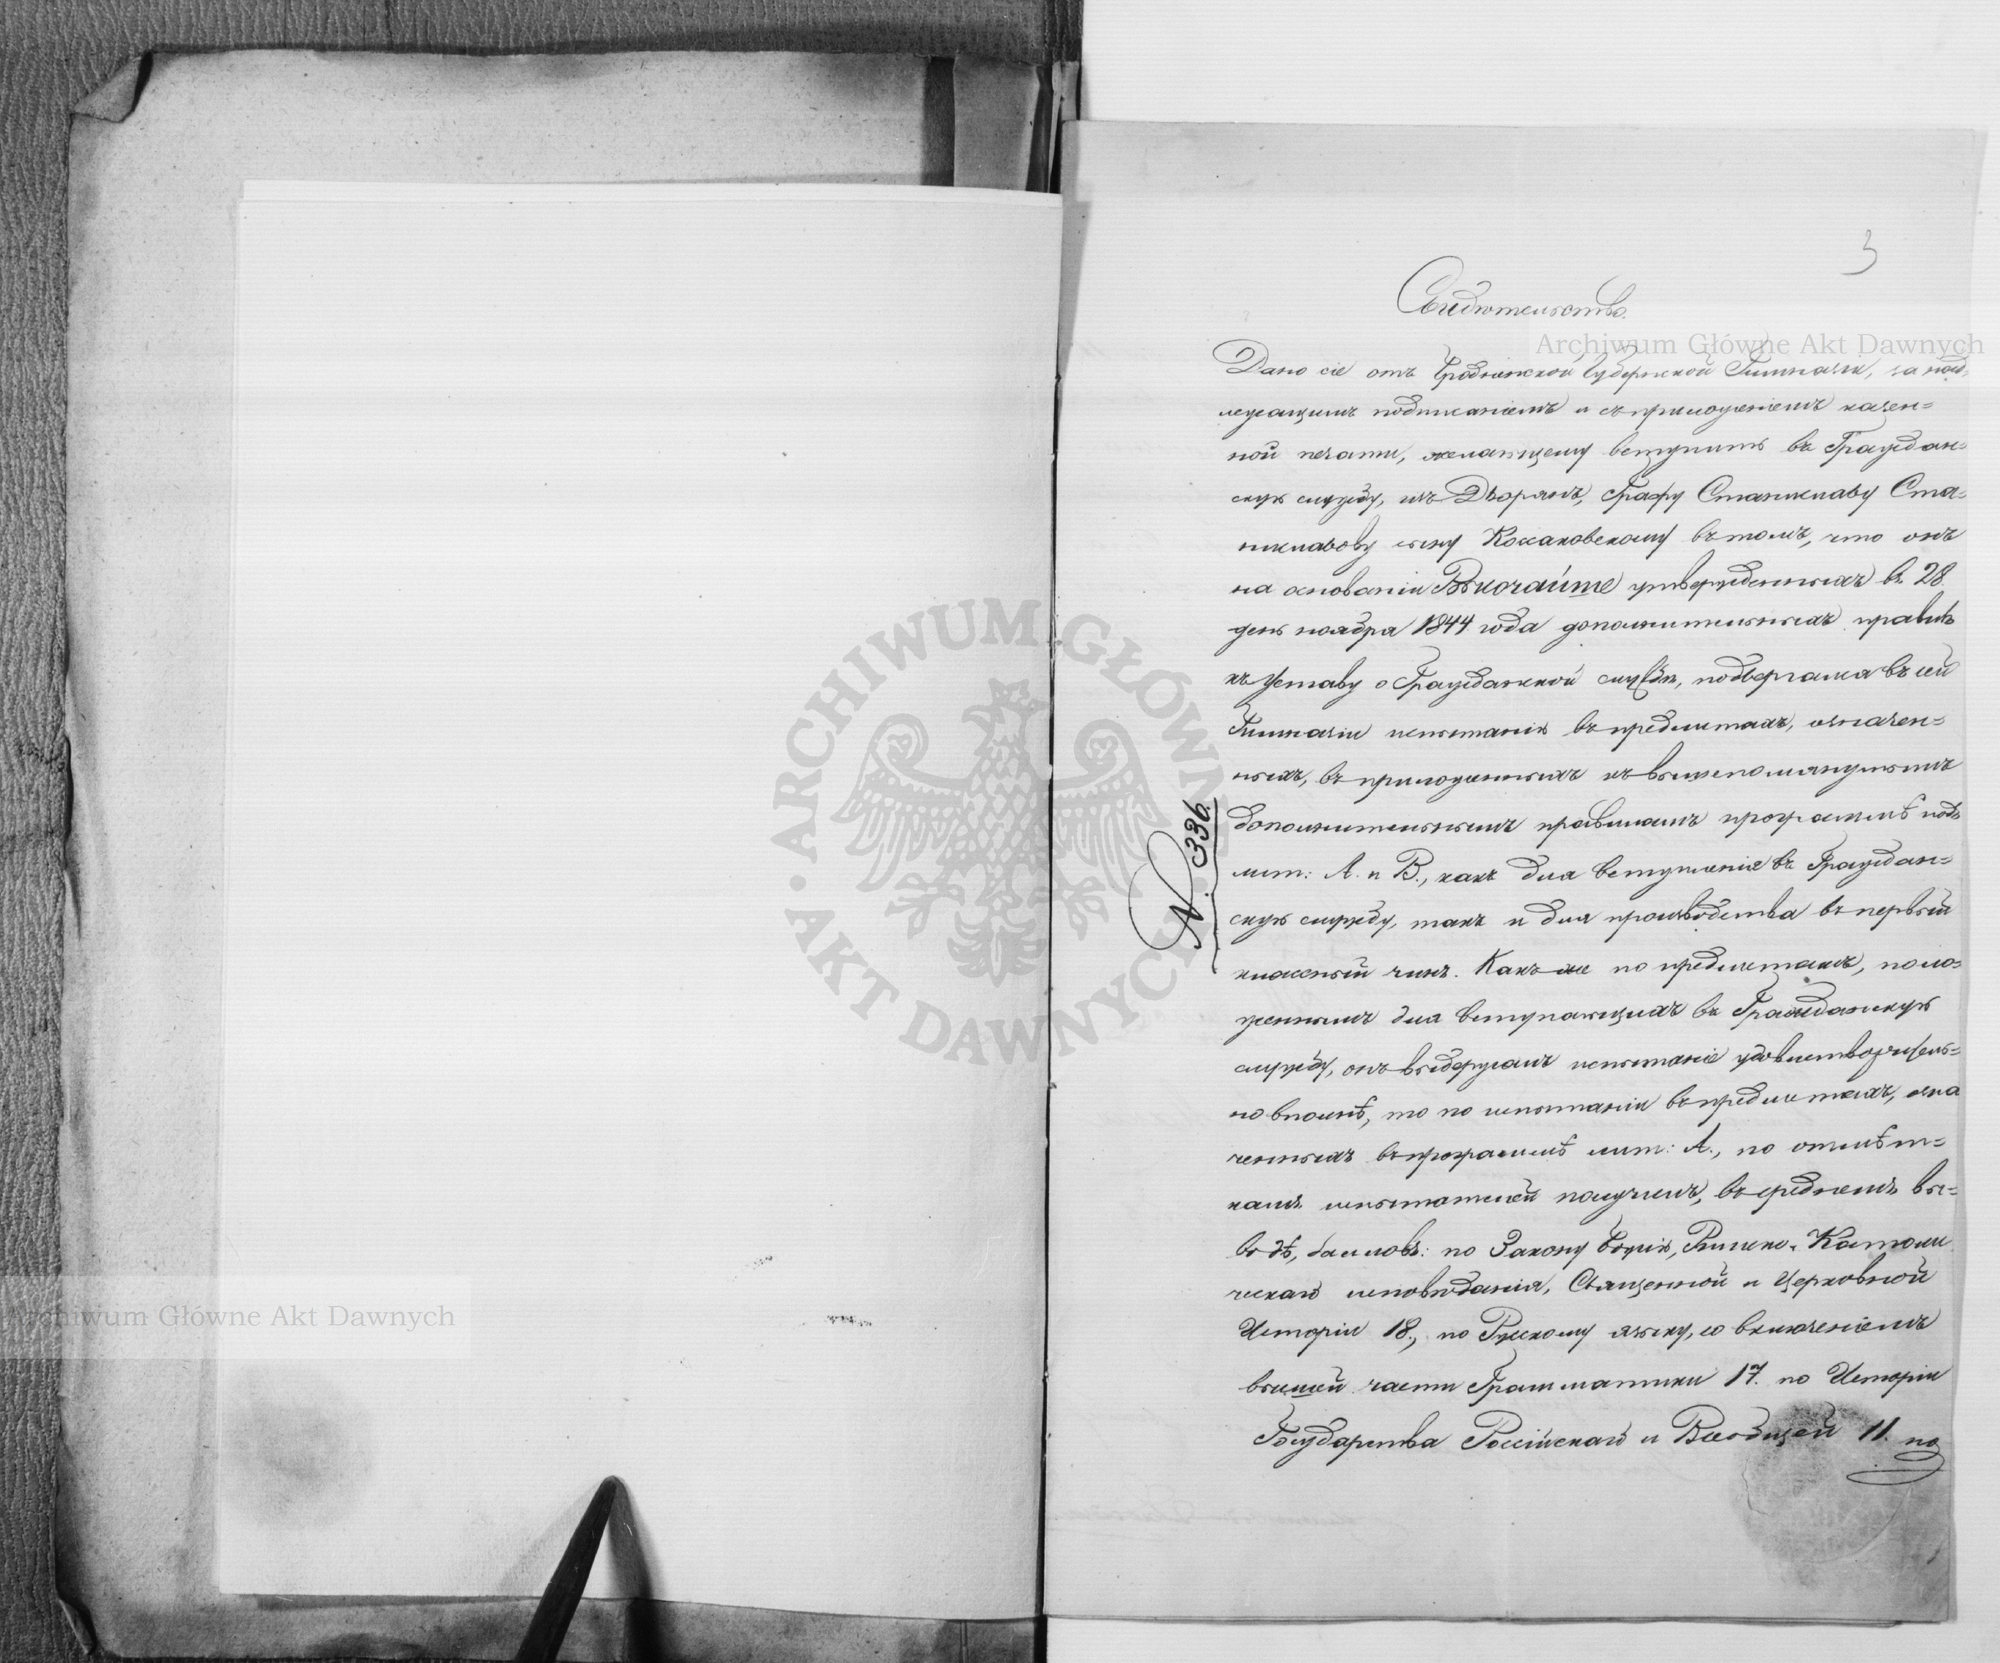 3
Свидѣтельство.
Дано сіе отъ Гродненской Губернской Гимназіи, за над-
лежащимъ подписаніемъ и съ приложеніемъ казен=
ной печати, желающему вступить въ Граждан=
скую службу, изъ Дворянъ, Графу Станиславу Ста=
ниславову сыну Коссаковскому въ томъ, что онъ
на основаніи Высочайше утвержденныхъ въ 28.
день ноября 1844 года дополнительныхъ правилъ
къ Уставу о Гражданской службѣ, подвергался въ сей
Гимназіи испытанію въ предметахъ, означен=
ныхъ, въ приложенныхъ къ вышепомянутымъ
дополнительнымъ правиламъ программѣ подъ
лит: А. и В., какъ для вступленія въ Граждан=
скую службу, такъ и для производства въ первый
классный чинъ. Какъ же по предметамъ, поло=
женнымъ для вступающихъ въ Гражданскую
службу, онъ выдержалъ испытаніе удовлетворитель=
но вполнѣ, то по испытаніи въ предметахъ, озна
ченныхъ въ программѣ лит: А., по отмѣт=
камъ испытателей получилъ, въ среднемъ вы=
водѣ, балловъ: по Закону Божію, Римско-Католи
ческаго исповѣданія, Священной и Церковной
Исторіи 18., по Русскому языку, со включеніемъ
высшей части Грамматики 17. по Исторіи
Государства Россійскаго и Всеобщей 11. по
N. 336.
Archiwum Główne Akt Dawnych
ARCHIWUM GŁÓWNE · AKT DAWNYCH ·
Archiwum Główne Akt Dawnych